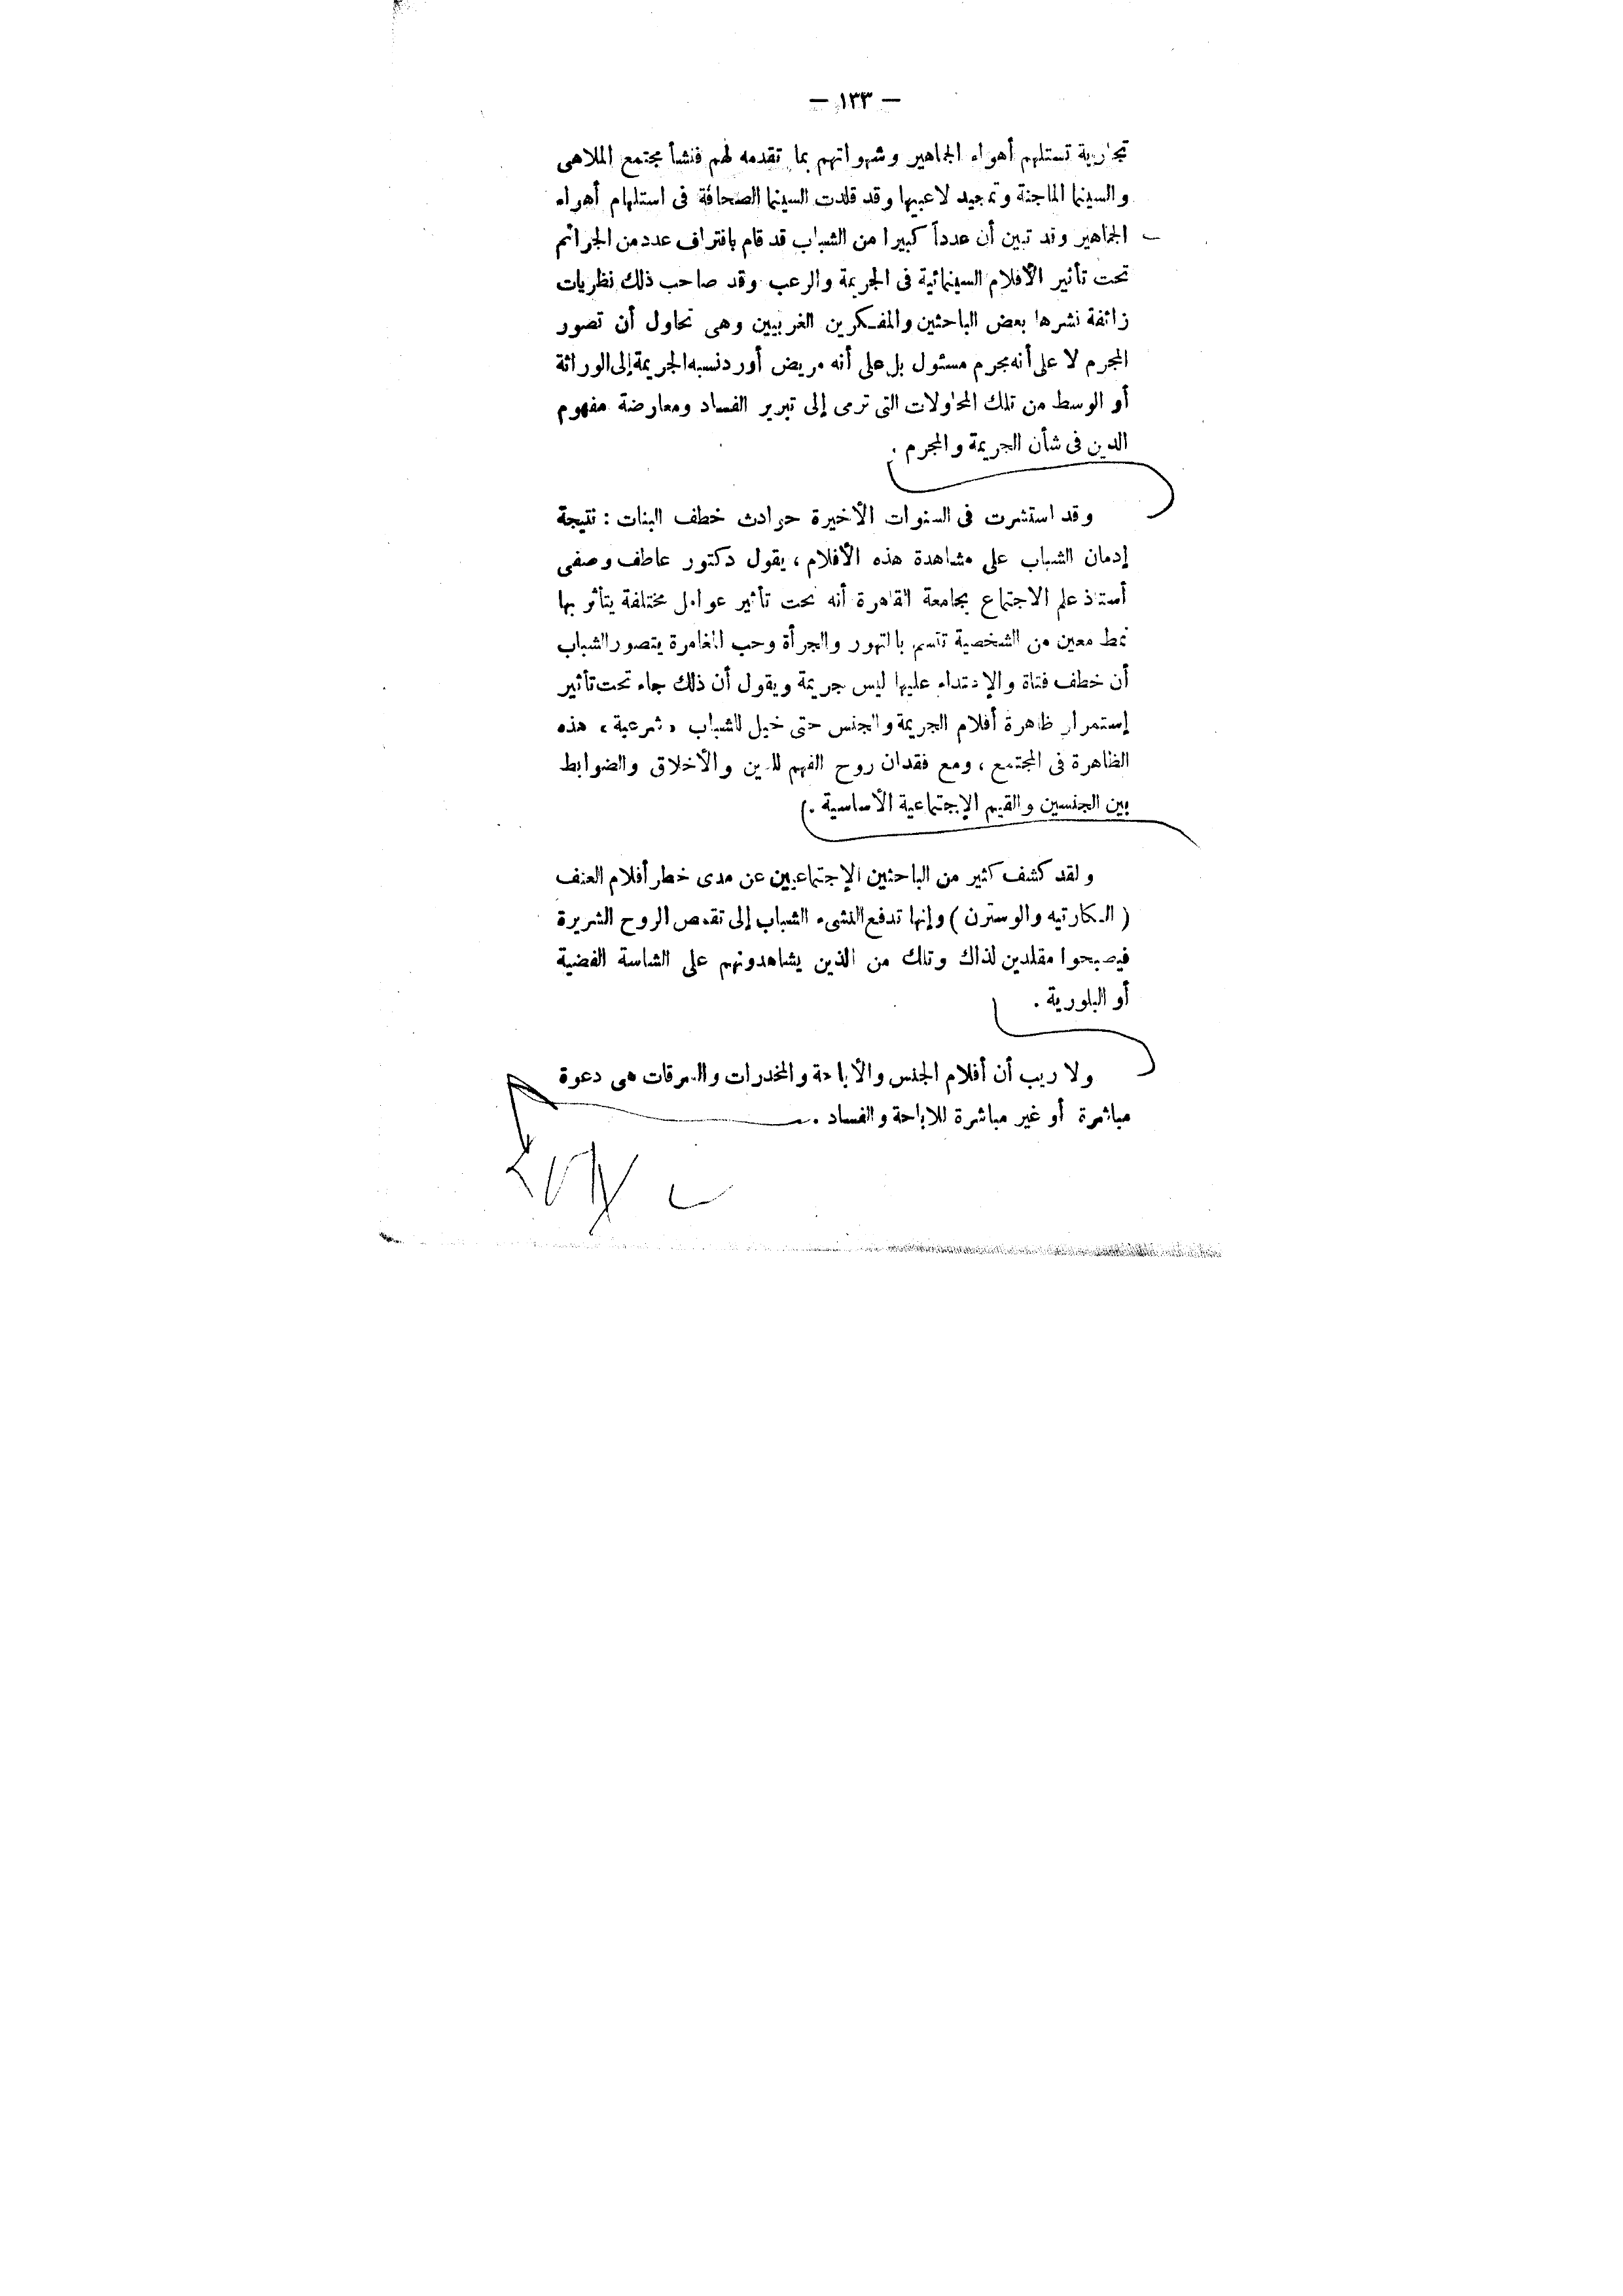 — ١٣٣ —
تجارية تستلهم أهواء الجماهير وشهواتهم بما تقدمه لهم فنشأ مجتمع الملاهى
والسينما الماجنة وتمجيد لاعبيها وقد قلدت السينما الصحافة فى استلهام أهواء
الجماهير وقد تبين أن عدداً كبيرا من الشباب قد قام باقتراف عدد من الجرائم
تحت تأثير الأفلام السينمائية فى الجريمة والرعب وقد صاحب ذلك نظريات
زائفة نشرها بعض الباحثين والمفكرين الغربيين وهى تحاول أن تصور
المجرم لا على أنه مجرم مسئول بل على أنه مريض أو رد نسبه الجريمة إلى الوراثة
أو الوسط من تلك المحاولات التى ترمى إلى تبرير الفساد ومعارضة مفهوم
الدين فى شأن الجريمة والمجرم .
وقد استشرت فى السنوات الأخيرة حوادث خطف البنات : نتيجة
إدمان الشباب على مشاهدة هذه الأفلام ، يقول دكتور عاطف وصفى
أستاذ علم الاجتماع بجامعة القاهرة أنه تحت تأثير عوامل مختلفة يتأثر بها
نمط معين من الشخصية تتسم بالتهور والجرأة وحب المغامرة يتصور الشباب
أن خطف فتاة والإعتداء عليها ليس جريمة ويقول أن ذلك جاء تحت تأثير
إستمرار ظاهرة أفلام الجريمة والجنس حتى خيل للشباب « شرعية » هذه
الظاهرة فى المجتمع ، ومع فقدان روح الفهم للدين والأخلاق والضوابط
بين الجنسين والقيم الإجتماعية الأساسية .
ولقد كشف كثير من الباحثين الإجتماعيين عن مدى خطر أفلام العنف
( الكارتيه والوسترن ) وإنها تدفع النشىء الشباب إلى تقمص الروح الشريرة
فيصبحوا مقلدين لذاك وتلك من الذين يشاهدونهم على الشاسة الفضية
أو البلورية .
ولا ريب أن أفلام الجنس والأباحة والمخدرات والسرقات هى دعوة
مباشرة أو غير مباشرة للاباحة والفساد .